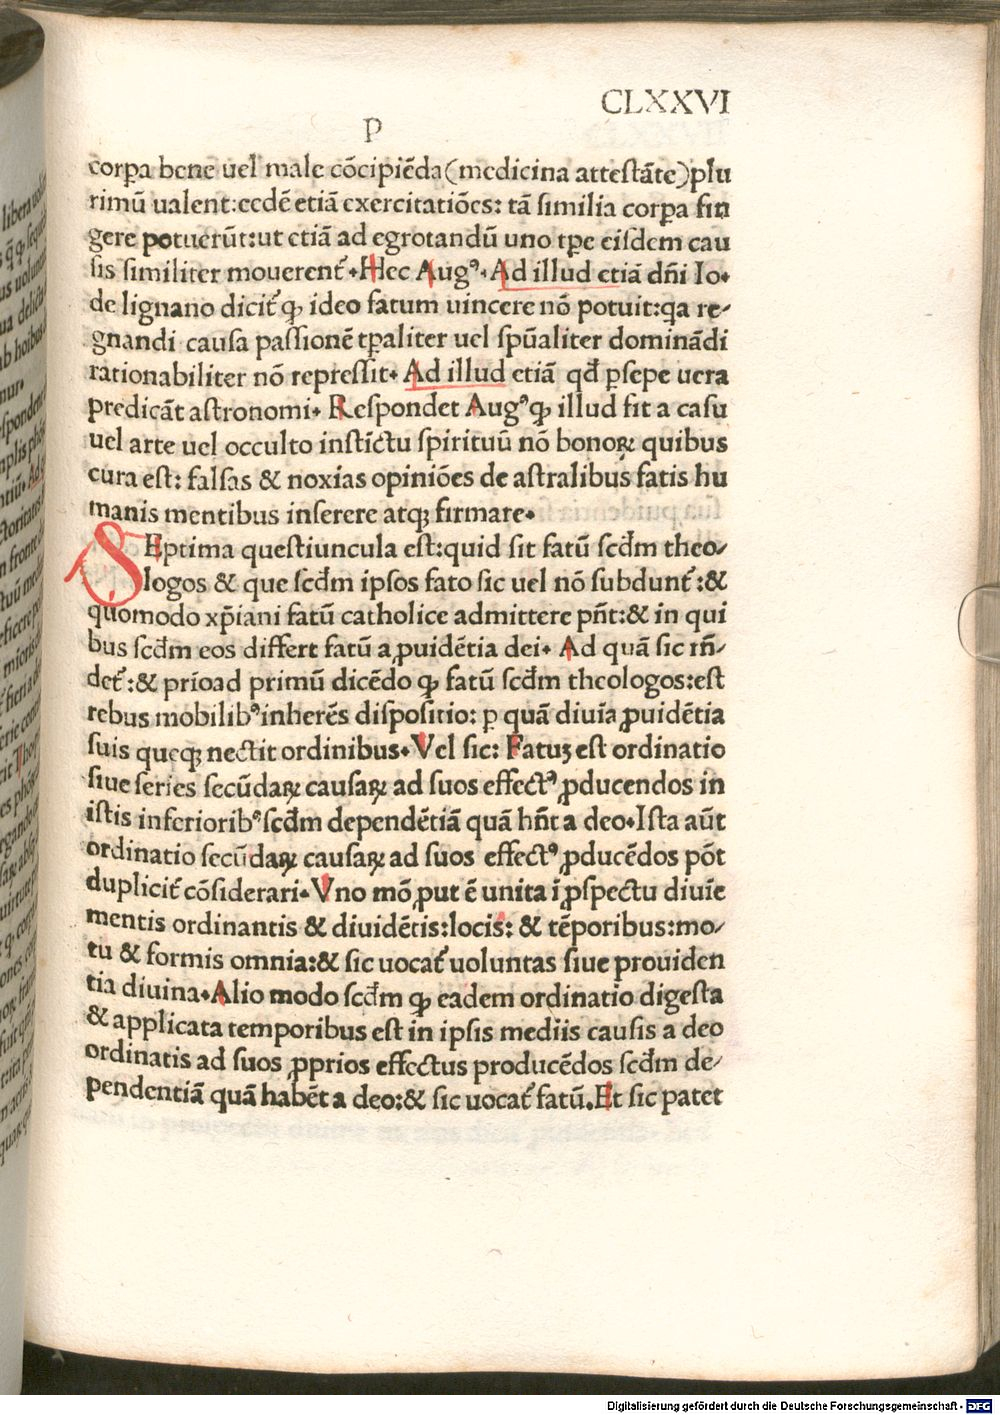 CLXXVI
P
corꝑa bene uel male cōcipiēda(medicina attestāte)plu
rimū ualent:eedē etiā exercitatiōes: tā similia corꝑa fin
gere potuerūt:ut etiā ad egrotandū uno tꝑe eisdem cau
sis similiter mouerent᷑.Hec Augꝰ.Ad illud etiā dn̄i Io.
de lignano dicit᷑ ꝙ ideo fatum uincere nō potuit:qa re⸗
gnandi causa passionē tꝑaliter uel spūaliter dominādi
rationabiliter nō repressit. Ad illud etiā qđ ꝑsepe uera
predicāt astronomi. Respondet Augꝰ ꝙ illud fit a casu
uel arte uel occulto instictu spirituū nō bonoꝝ quibus
cura est: falsas & noxias opiniōes de astralibus fatis hu
manis mentibus inserere atqꝫ firmare.
SEptima questiuncula est:quid sit fatū scđm theo⸗
logos & que scđm ipsos fato sic uel nō subdunt᷑:&
quomodo xp̄iani fatū catholice admittere pn̄t:& in qui
bus scđm eos differt fatū a ꝓuidētia dei. Ad quā sic rn̄⸗
det᷑:& prīoad primū dicēdo ꝙ fatū scđm theologos:est
rebus mobilibꝰ inherēs dispositio: ꝑ quā diuīa ꝓuidētia
suis queqꝫ nectit ordinibus.Vel sic: Fatuꝫ est ordinatio
siue series secūdaꝝ causaꝝ ad suos effectꝰ ꝓducendos in
istis inferioribꝰ scđm dependētiā quā hn̄t a deo.Ista aūt
ordinatio secūdaꝝ causaꝝ ad suos effectꝰ ꝓducēdos pōt
duplicit᷑ cōsiderari.Vno mō ꝓut ē unita ī ꝓspectu diuīe
mentis ordinantis & diuidētis:locis: & tēporibus:mo⸗
tu & formis omnia:& sic uocat᷑ uoluntas siue prouiden
tia diuina.Alio modo scđm ꝙ eadem ordinatio digesta
& applicata temporibus est in ipsis mediis causis a deo
ordinatis ad suos ꝓprios effectus producēdos scđm de⸗
pendentiā quā habēt a deo:& sic uocat᷑ fatū.Et sic patet
Digitalisierung gefördert durch die Deutsche Forschungsgemeinschaft - DFG